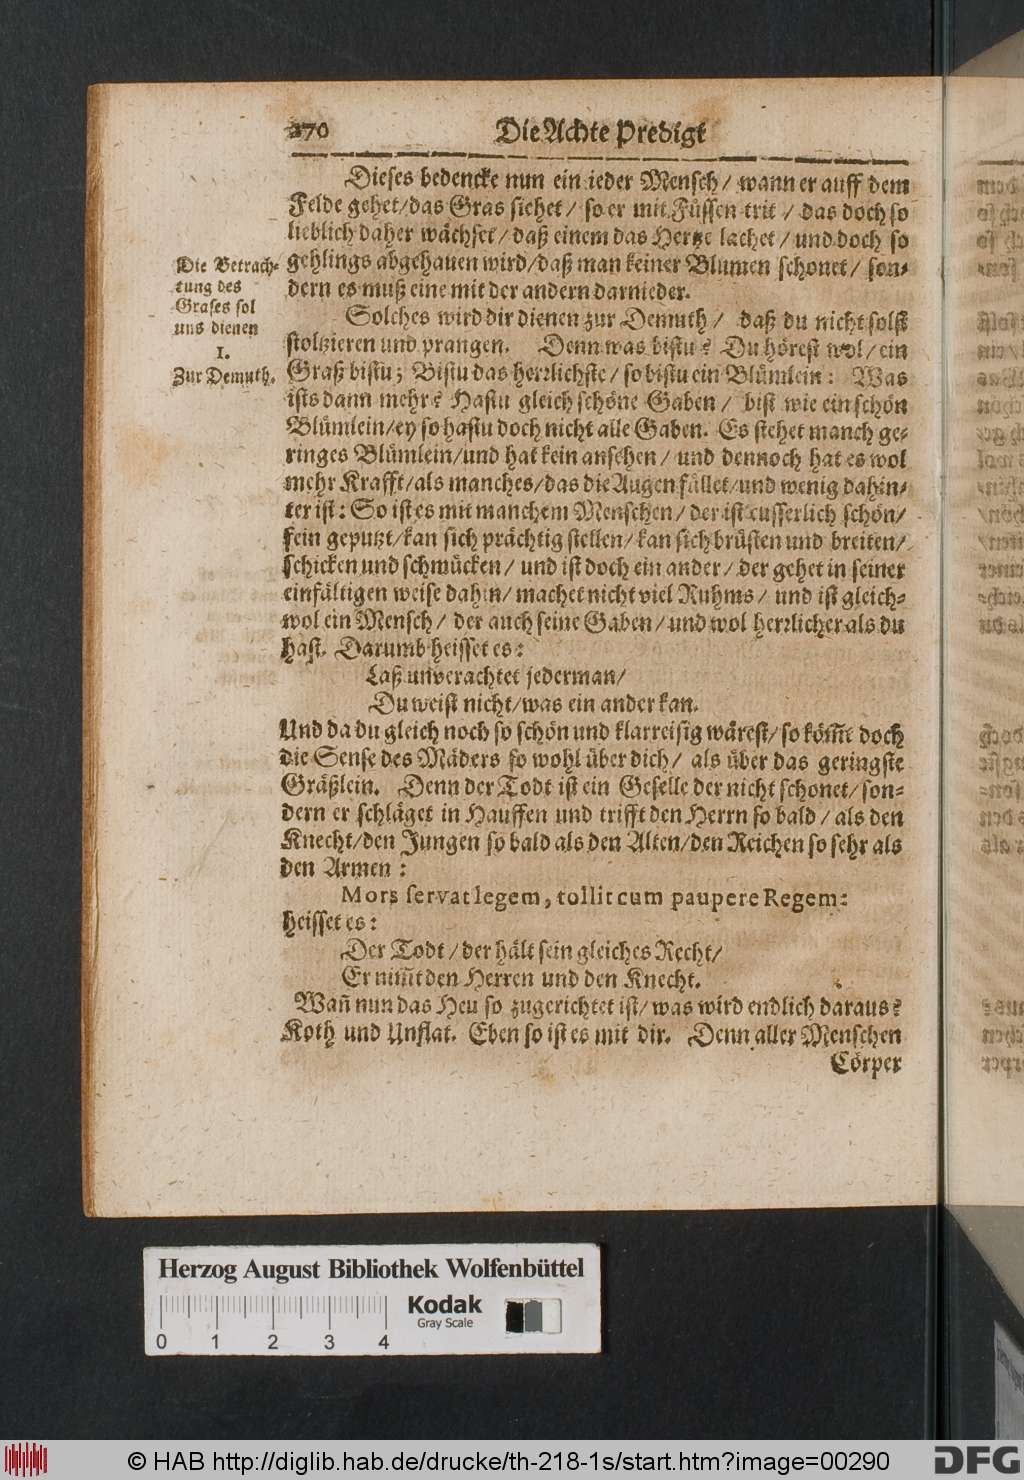 270
Die Achte Predigt
Dieses bedencke nun ein ieder Mensch / wann er auff dem
Felde gehet/das Gras siehet / so er mit Füssen trit / das doch so
lieblich daher wächset / daß einem das Hertze lachet / und doch so
gehlings abgehauen wird/daß man keiner Blumen schonet / son-
dern es muß eine mit der andern darnieder.
Die Betrach-
tung des
Grases sol
uns dienen
1.
Zur Demuth.
Solches wird dir dienen zur Demuth / daß du nicht solst
stoltzieren und prangen. Denn was bistu? Du hörest wol / ein
Graß bistu; Bistu das herrlichste / so bistu ein Blümlein: Was
ists dann mehr? Hastu gleich schöne Gaben / bist wie ein schön
Blümlein/ey so hastu doch nicht alle Gaben. Es stehet manch ge-
ringes Blümlein/und hat kein ansehen / und dennoch hat es wol
mehr Krafft/als manches/das die Augen füllet/und wenig dahin-
ter ist: So ist es mit manchem Menschen / der ist eusserlich schön/
fein geputzt/kan sich prächtig stellen/ kan sich brüsten und breiten/
schicken und schmücken / und ist doch ein ander / der gehet in seiner
einfältigen weise dahin/ machet nicht viel Ruhms / und ist gleich-
wol ein Mensch / der auch seine Gaben / und wol herrlicher als du
hast. Darumb heisset es:
Laß unverachtet jederman/
Du weist nicht/was ein ander kan.
Und da du gleich noch so schön und klarreisig wärest/ so köm̃t doch
die Sense des Mäders so wohl über dich / als über das geringste
Gräßlein. Denn der Todt ist ein Geselle der nicht schonet / son-
dern er schläget in Hauffen und trifft den Herrn so bald / als den
Knecht/den Jungen so bald als den Alten/den Reichen so sehr als
den Armen:
Mors servat legem, tollit cum paupere Regem:
heisset es:
Der Todt / der hält sein gleiches Recht/
Er nim̃t den Herren und den Knecht.
Wañ nun das Heu so zugerichtet ist/ was wird endlich daraus?
Koth und Unflat. Eben so ist es mit dir. Denn aller Menschen
Cörper
Herzog August Bibliothek Wolfenbüttel
Kodak
Gray Scale
0 1 2 3 4
© HAB http://diglib.hab.de/drucke/th-218-1s/start.htm?image=00290
DFG